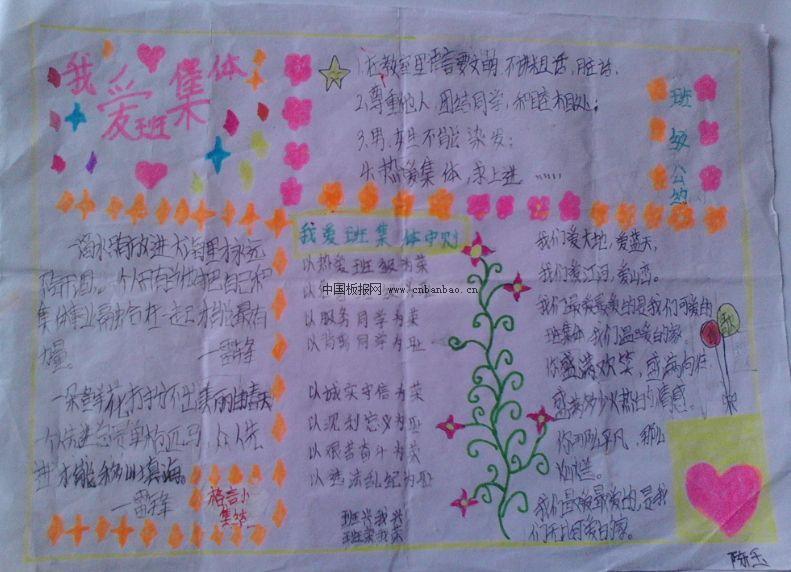 我爱班集体
1.在教室里语言要文明,不讲粗话,脏话.
2.尊重他人,团结同学,和睦相处;
3.男,女生不能染发;
4.热爱集体,求上进 ……
班级公约
一滴水只有放进大海里才永远
不会干涸。一个人只有当他把自己和
集体事业融合在一起才能最有
力量。
—雷锋
一朵鲜花打扮不出美丽的春天
一个人先进总是单枪匹马,众人先
进才能移山填海。
—雷锋
格言小
集锦
我爱班集体守则
以热爱班级为荣
以服务同学为荣
以诚实守信为荣
以见利忘义为耻
以艰苦奋斗为荣
以违法乱纪为耻
班兴我兴
班荣我荣
我们爱大地,爱蓝天,
我们爱江河,爱山峦。
我们最爱最爱的是我们可爱的
班集体,我们温暖的家。
你盛满欢笑,盛满
盛满
你
我们最爱最爱的,是我
们可爱的家。
中国板报网 www.cnbanbao.cn
陈玉